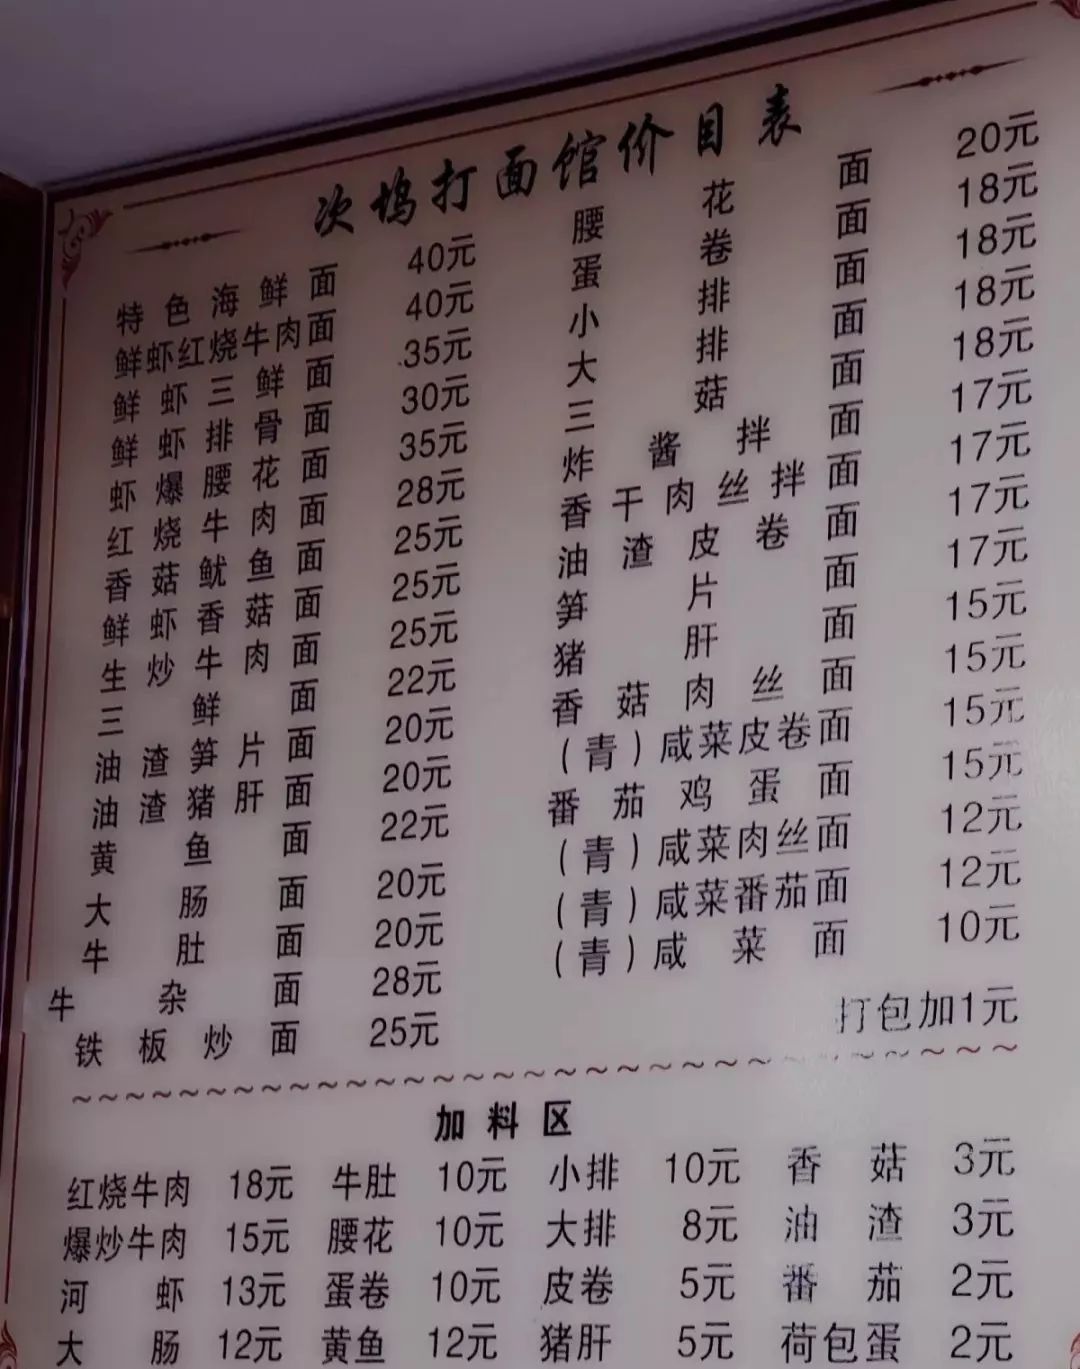 次坞打面馆价目表
特色海鲜面 40元
鲜虾红烧牛肉面 40元
鲜虾三鲜面 35元
鲜虾排骨面 30元
虾爆腰花面 35元
红烧牛肉面 28元
香菇鱿鱼面 25元
鲜虾香菇面 25元
生炒牛肉面 25元
三鲜面 22元
油渣笋片面 20元
油渣猪肝面 20元
黄鱼面 22元
大肠面 20元
牛肚面 20元
牛杂面 28元
铁板炒面 25元
腰花面 20元
蛋卷面 18元
小排面 18元
大排面 18元
三菇面 18元
炸酱拌面 17元
香干肉丝拌面 17元
油渣皮卷面 17元
笋片面 17元
猪肝面 15元
香菇肉丝面 15元
(青)咸菜皮卷面 15元
番茄鸡蛋面 15元
(青)咸菜肉丝面 12元
(青)咸菜番茄面 12元
(青)咸菜面 10元
打包加1元
加料区
红烧牛肉 18元 牛肚 10元 小排 10元 香菇 3元
爆炒牛肉 15元 腰花 10元 大排 8元 油渣 3元
河虾 13元 蛋卷 10元 皮卷 5元 番茄 2元
大肠 12元 黄鱼 12元 猪肝 5元 荷包蛋 2元